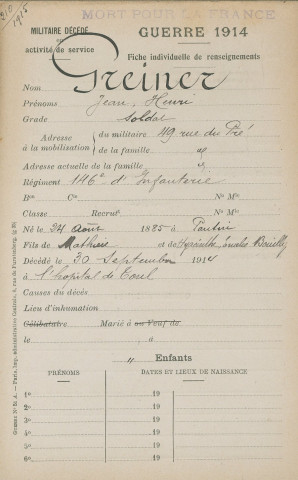 MORT POUR LA FRANCE
1915
MILITAIRE DÉCÉDÉ
en
activité de service
GUERRE 1914
Fiche individuelle de renseignements
Nom Greiner
Prénoms Jean, Henri
Grade Soldat
Adresse à la mobilisation { du militaire 49 rue du Pré
de la famille d°
Adresse actuelle de la famille d°
Régiment 146e d'Infanterie
Bon Cie No Mle
Classe Recrut No Mle
Né le 24 Août 1885 à Pantin
Fils de Mathieu et
Décédé le 30 Septembre 1914
à l'hopital de Toul
Causes du décès
Lieu d'inhumation
Célibataire Marié à ou Veuf de
le à
" Enfants
PRÉNOMS DATES ET LIEUX DE NAISSANCE
1o 19
2o 19
3o 19
4o 19
5o 19
6o 19